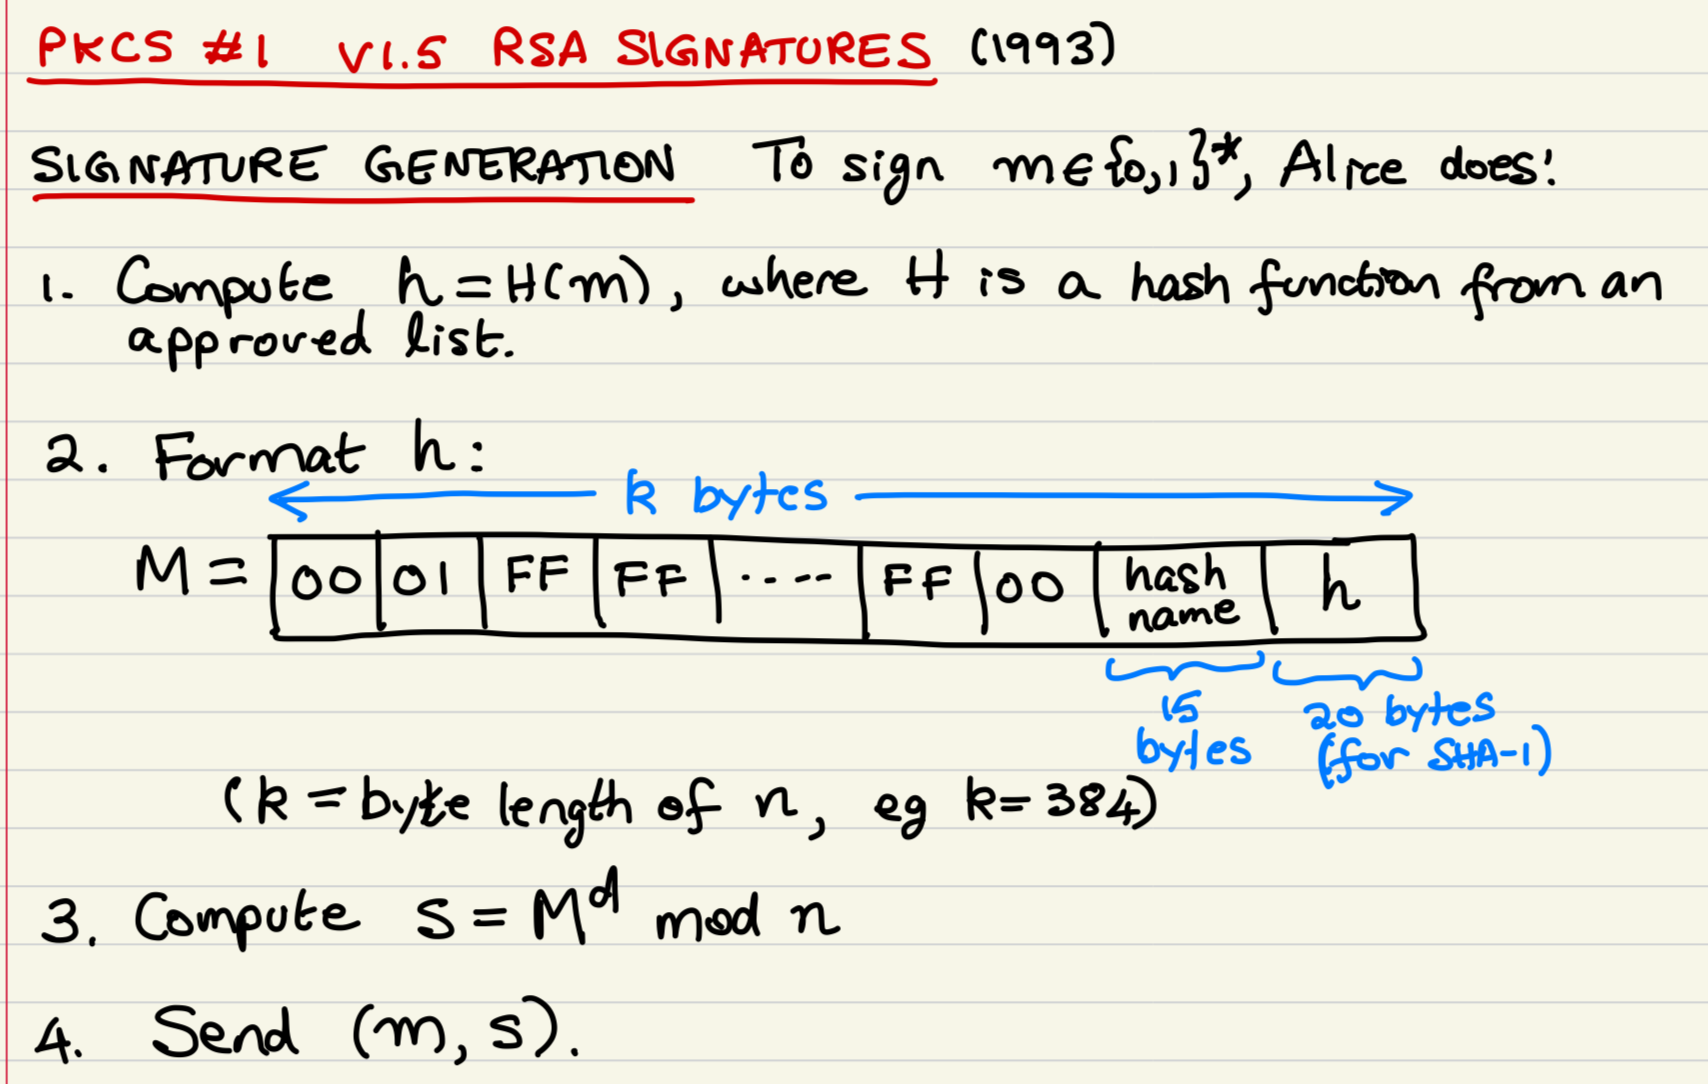 PKCS #1 v1.5 RSA SIGNATURES (1993)
SIGNATURE GENERATION To sign m∈{0,1}*, Alice does:
1. Compute h=H(m), where H is a hash function from an
approved list.
2. Format h:
k bytes
M= 00 01 FF FF ---- FF 00 hash name h
15 bytes
20 bytes (for SHA-1)
(k = byte length of n, eg k=384)
3. Compute s = M^d mod n
4. Send (m, s).